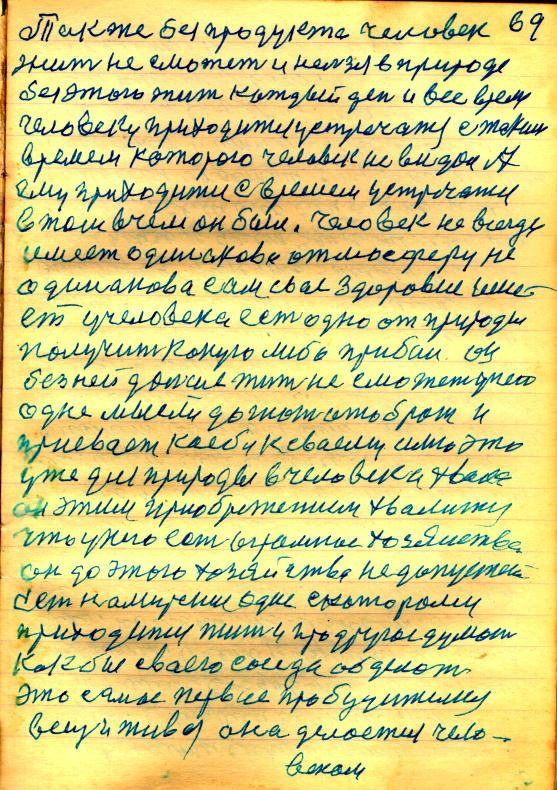 69
Также без продукта человек
жит не сможет и нелзя в природе
без этого жит каждый ден и все время
человеку приходится устречатя с таким
времем которого человек не видал А
ему приходитя с времем устречатя
в том в чем он был. Человек не всегда
имеет одинакова атмосферу не
одинакова сам свае здоровие имеет
ест у человека ест одно от природы
получит какую либо прибал он
без ней далше жит не сможет у него
одне мысли догнат отобрат и
присвает к себи к сваему имю это
уже для природы в человека хвала
он этим приобретением хвалитя
что у него ест огромное хозяйства
он до этого хозяйства не допустит
ест намерение одне с которами
приходитя жит и про другое думат
как бы сваего соседа обделат
это самое первые пробудителя
всему живоя она делается чело-
веком